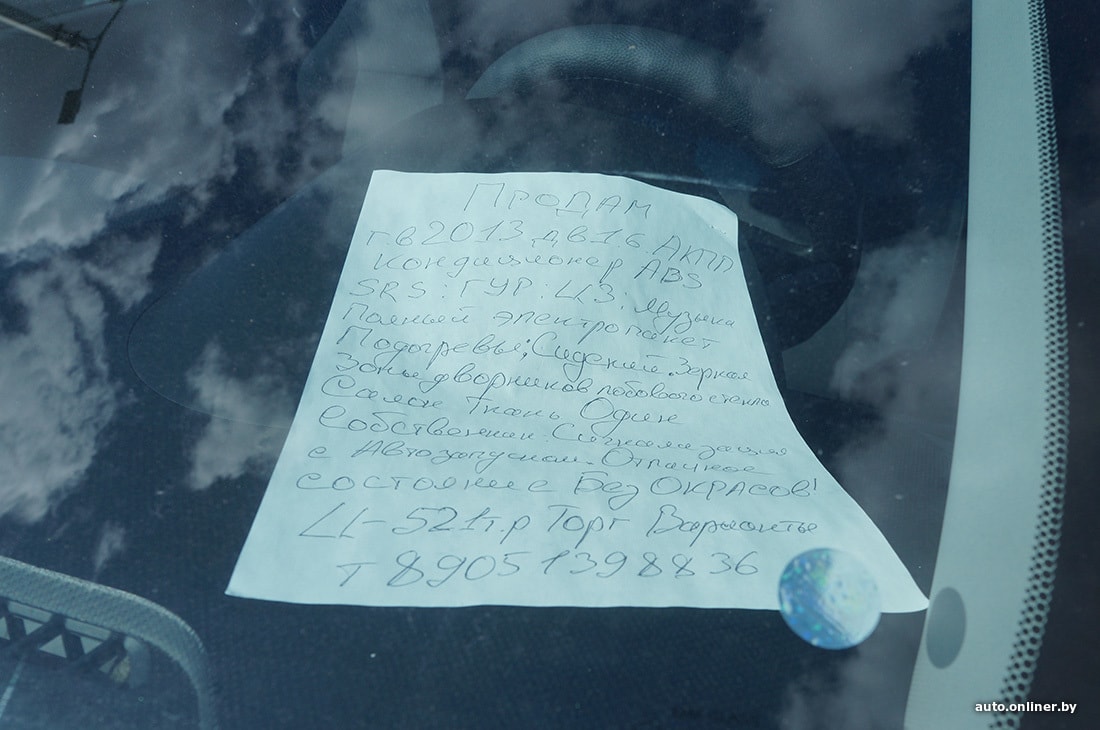 Продам
г.в 2013 дв 1.6 АКПП
Кондиционер ABS
SRS : ГУР : ЦЗ : Музыка
Полный электропакет
Подогревы; Сидений Зеркал
Зоны дворников лобового стекла
Салон Ткань Один
Собственник. Сигнализация
с Автозапуском. Отличное
состояние Без Окрасов!
Ц-521т.р Торг Варианты
т 89051398836
auto.onliner.by